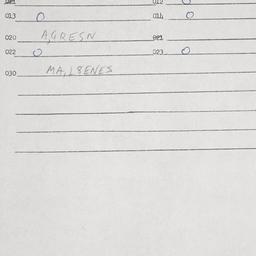 012
013 O 014 O
020 A,GRESN 021
022 O 023 O
030 MA,L8ENES